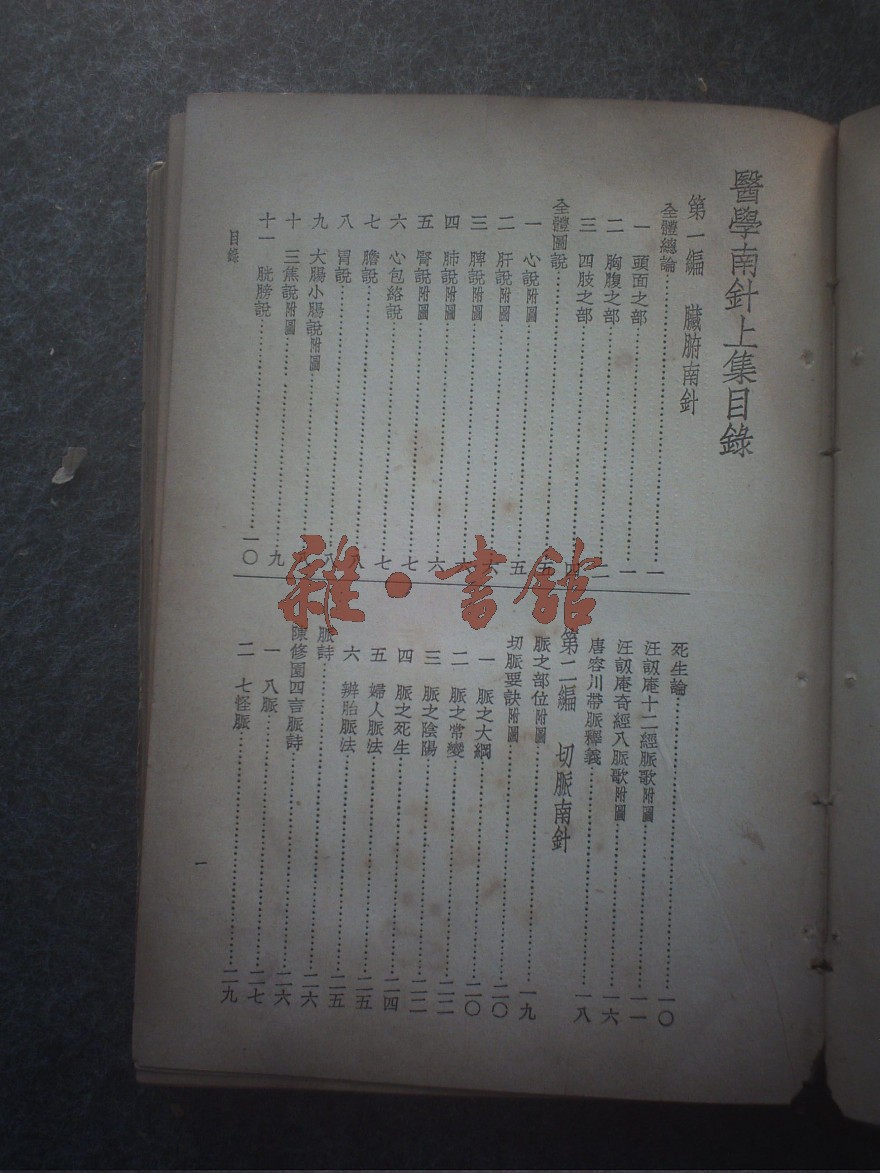 醫學南針上集目錄
第一編 臟腑南針
全體總論……一
一 頭面之部……一
二 胸腹之部……二
三 四肢之部……四
全體圖說……五
一 心說附圖……五
二 肝說附圖……
三 脾說附圖……
四 肺說附圖……六
五 腎說附圖……七
六 心包絡說……七
七 膽說……八
八 胃說……八
九 大腸小腸說附圖……
十 三焦說附圖……九
十一 胱膀說……一〇
死生論……一〇
汪訒庵十二經脈歌附圖……一一
汪訒庵奇經八脈歌附圖……一六
唐容川帶脈釋義……一八
第二編 切脈南針
脈之部位附圖……一九
切脈要訣附圖……二〇
一 脈之大綱……二〇
二 脈之常變……二二
三 脈之陰陽……二二
四 脈之死生……二四
五 婦人脈法……二五
六 辨胎脈法……二五
脈詩……二六
陳修園四言脈詩……二六
一 八脈……二七
二 七怪脈……二九
目錄
一
雜·書館